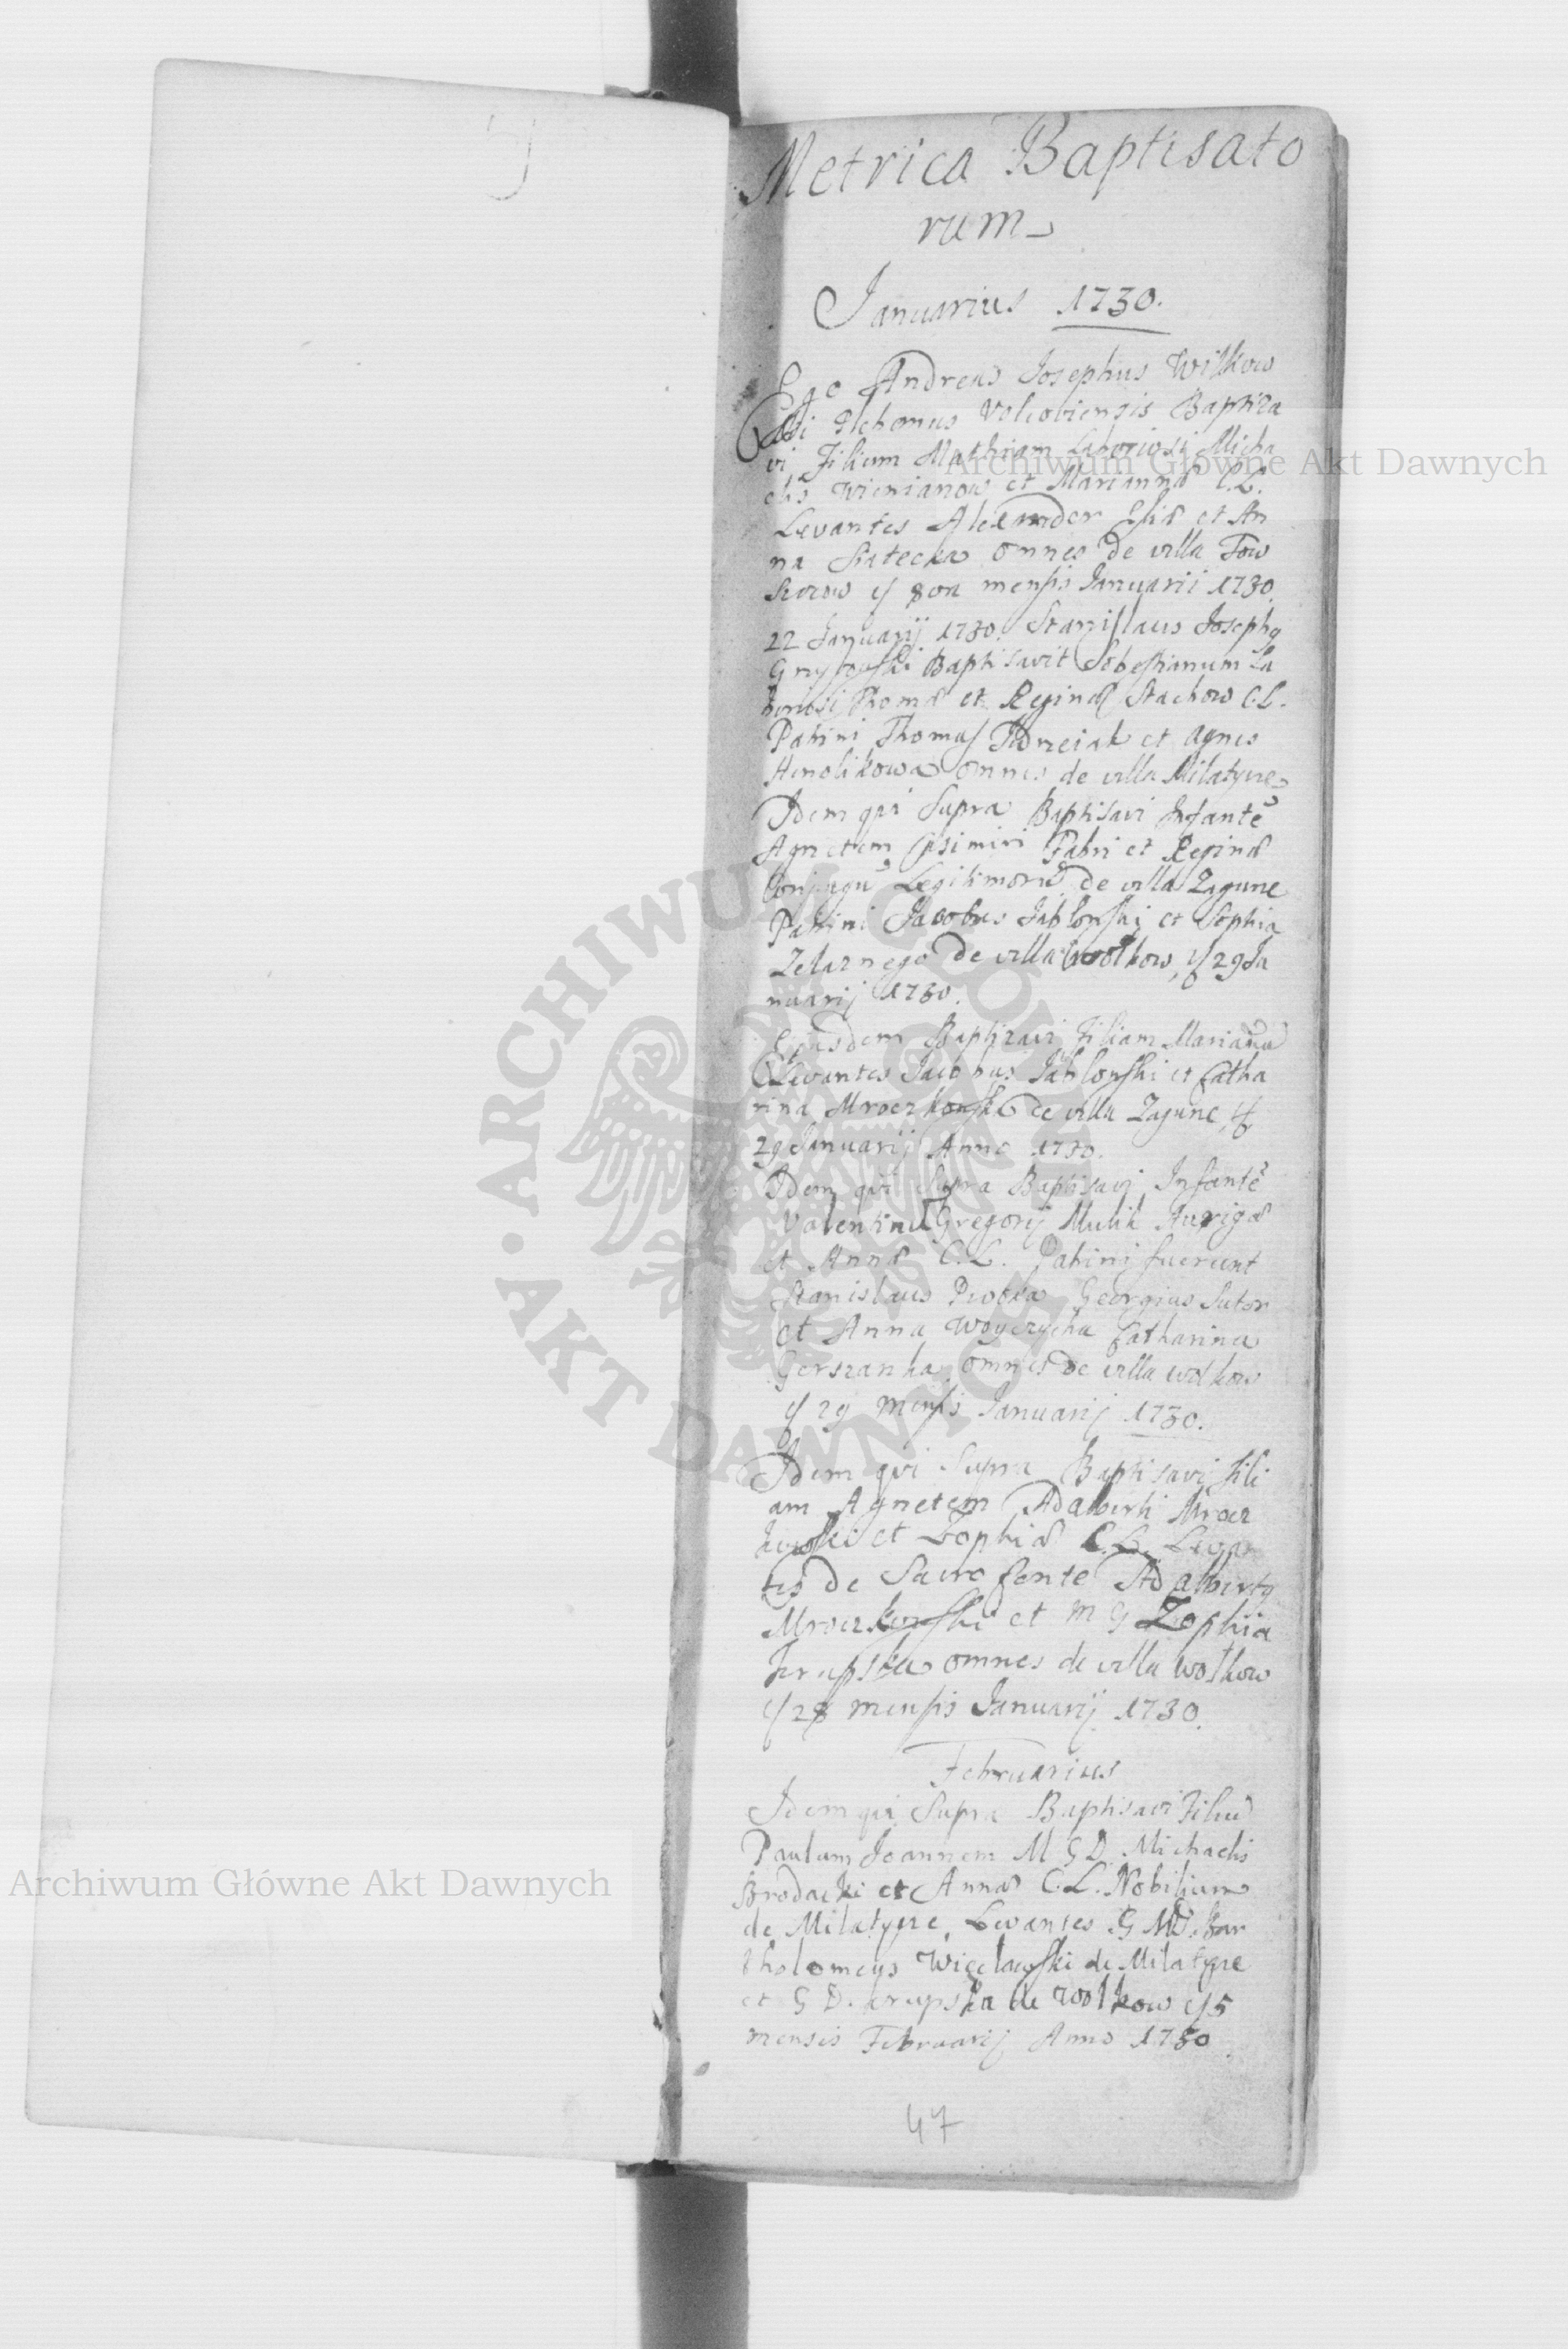 Metrica Baptisato
rum
Januarius 1730.
Ego Andreas Josephus Wilkow
ski Volcoviensis Baptiza
vi Filium Mathiam Laboriosi Micha
elis et Marianna C.L.
Levantes Alexander et An
na omnes de villa
mensis Januarii 1730.
22 Januarij 1730. Stanislaus Joseph9
Baptisavit Sebestianum La
boriosi Thoma et Regina Stachow C.L.
Patrini Thomas et Agnes
omnes de villa Milatyne
Idem qui Supra Baptisavi Infantē
Agnetem Casimiri Fabri et Regina
Conjugū Legitimorū de villa Zagune
Patrini Jacobus Jablonski et Sophia
Zelaznego de villa Wolkow 29 Ja
nuarij 1730.
Ejusdem Baptizavi Filiam Marianā
Levantes Jacobus Jablonski et Catha
rina de villa Zagune
29 Januarij Anno 1730.
Idem qui Supra Baptisavi Infantē
Valentinū Gregorij Mulik Auriga
et Anna C.L. Patrini fuerunt
Stanislaus Georgius Sutor
et Anna Catharina
omnes de villa Wolkow
29 mensis Januarij 1730.
Idem qui Supra Baptisavi Fili
am Agnetem Adalberti Mrocz
kowski et Zophia C.L. Levan
tes de Sacro fonte Adalbert9
Mroczkowski et M G Zophia
Krupska omnes de villa Wolkow
28 mensis Januarij 1730.
Februarius
Idem qui Supra Baptisavi Filiū
Paulum Joannem M G D. Michaelis
Brodacki et Anna C.L. Nobilium
de Milatyne, Levantes G M D. Bar
tholomeus Więcławski de Milatyne
et G D. Krupska de Wolkow 5
mensis Februarij Anno 1730.
47
Archiwum Główne Akt Dawnych
Archiwum Główne Akt Dawnych
ARCHIWUM GŁÓWNE
AKT DAWNYCH